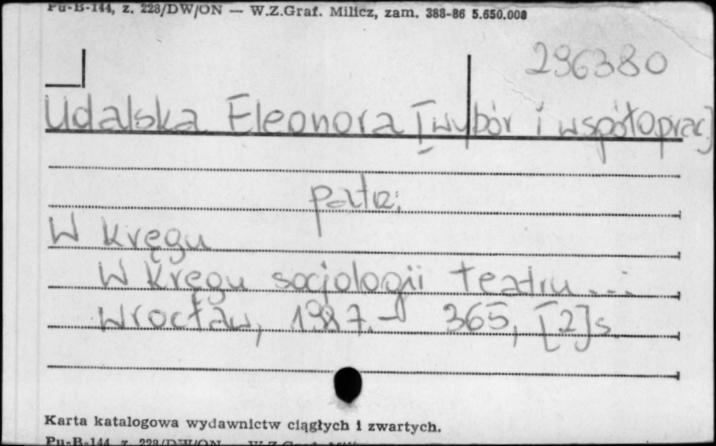 Pu-B-144, z. 228/DW/ON — W.Z.Graf. Milicz, zam. 388-86 5.650.000
296380
Udalska Eleonora [wybór i współoprac]
patrz:
W kręgu
W kręgu socjologii teatru...
Wrocław, 1987.- 365, [2]s.
Karta katalogowa wydawnictw ciągłych i zwartych.
Pu-B-144, z. 228/DW/ON — W.Z.Graf.